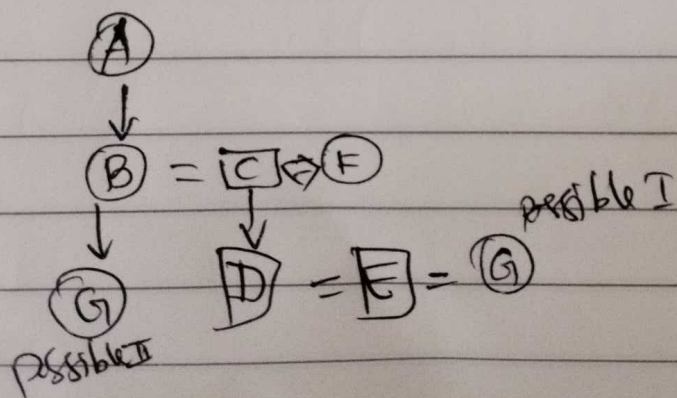 A
B = C ⇔ F
possible I
D = E = G
G
possible II